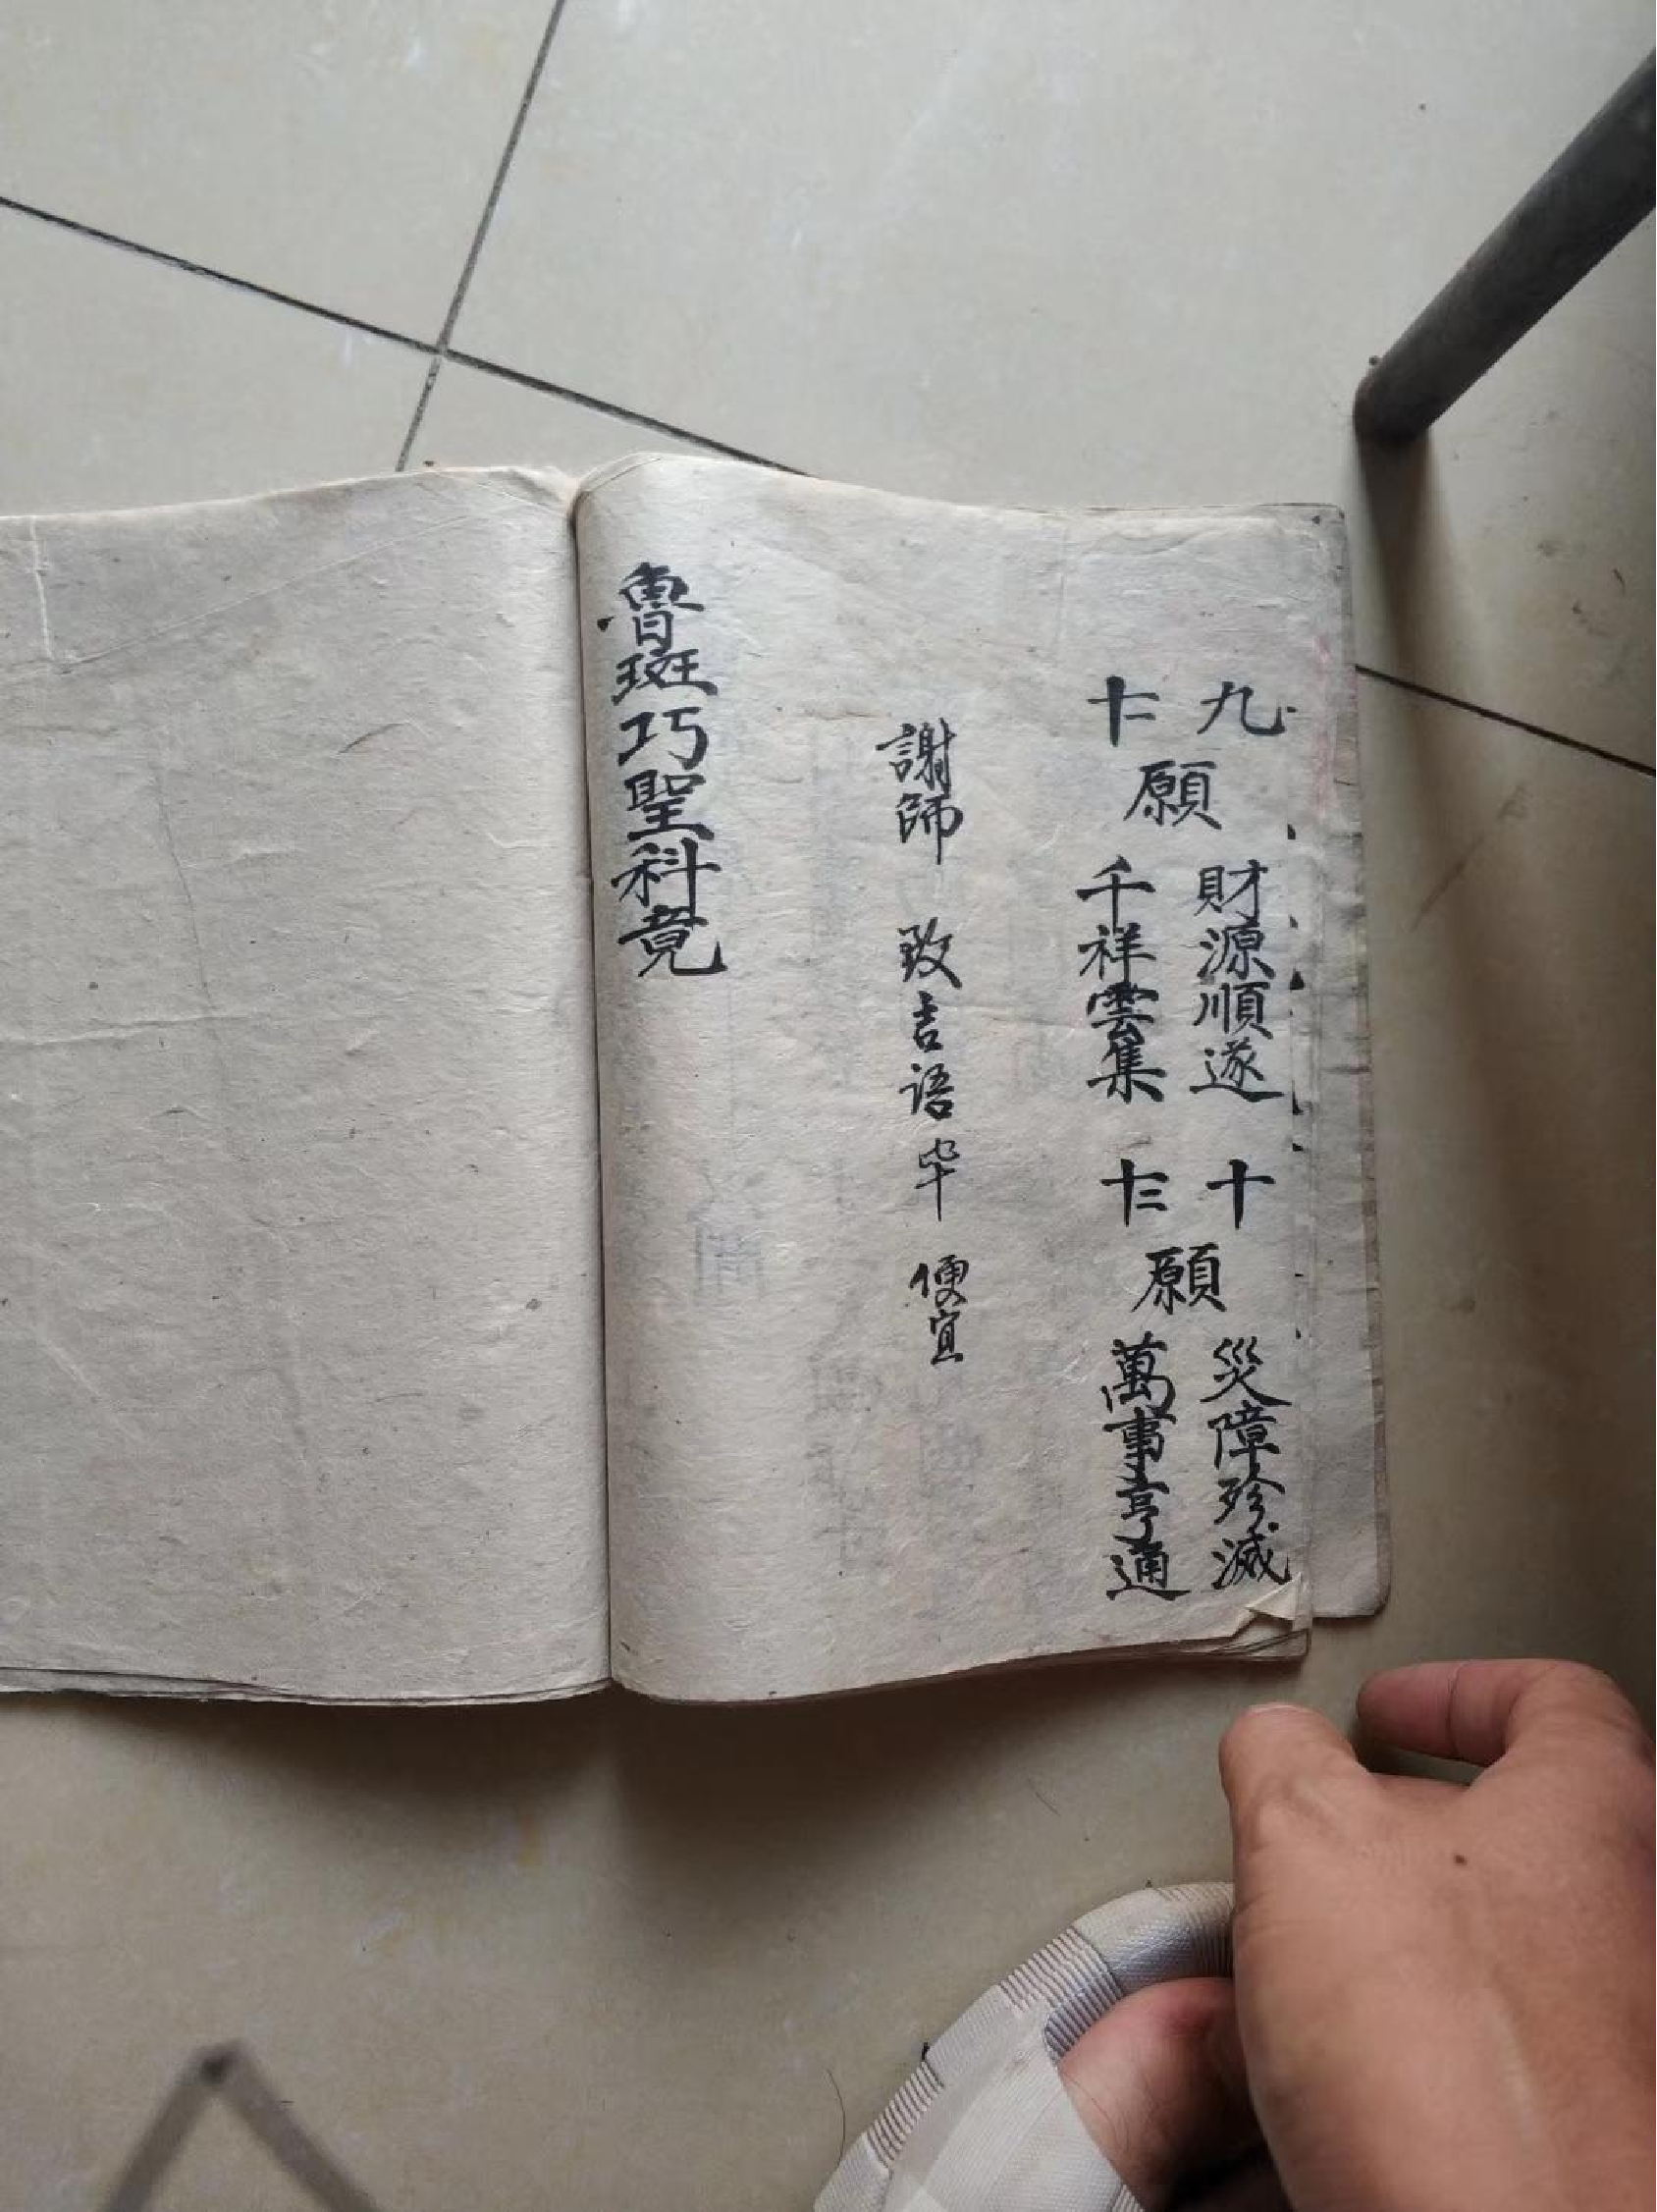 九 願 財源順遂 十 願 災障殄滅
十一 千祥雲集 十二 萬事亨通
謝師 致吉语毕 便宜
魯斑巧聖科竟